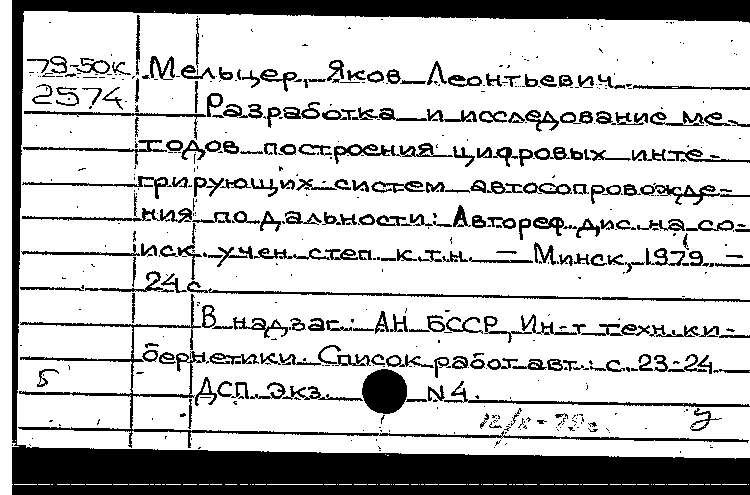 79-50к Мельцер, Яков Леонтьевич.
2574 Разработка и исследование ме-
тодов построения цифровых инте-
грирующих систем автосопровожде-
ния по дальности: Автореф. дис. на со-
иск. учен. степ. к.т.н. — Минск, 1979. —
24 с.
В надзаг.: АН БССР, Ин-т техн. ки-
бернетики. Список работ авт.: с. 23-24
Б ДСП. Экз. N4.
12/X-79г. У